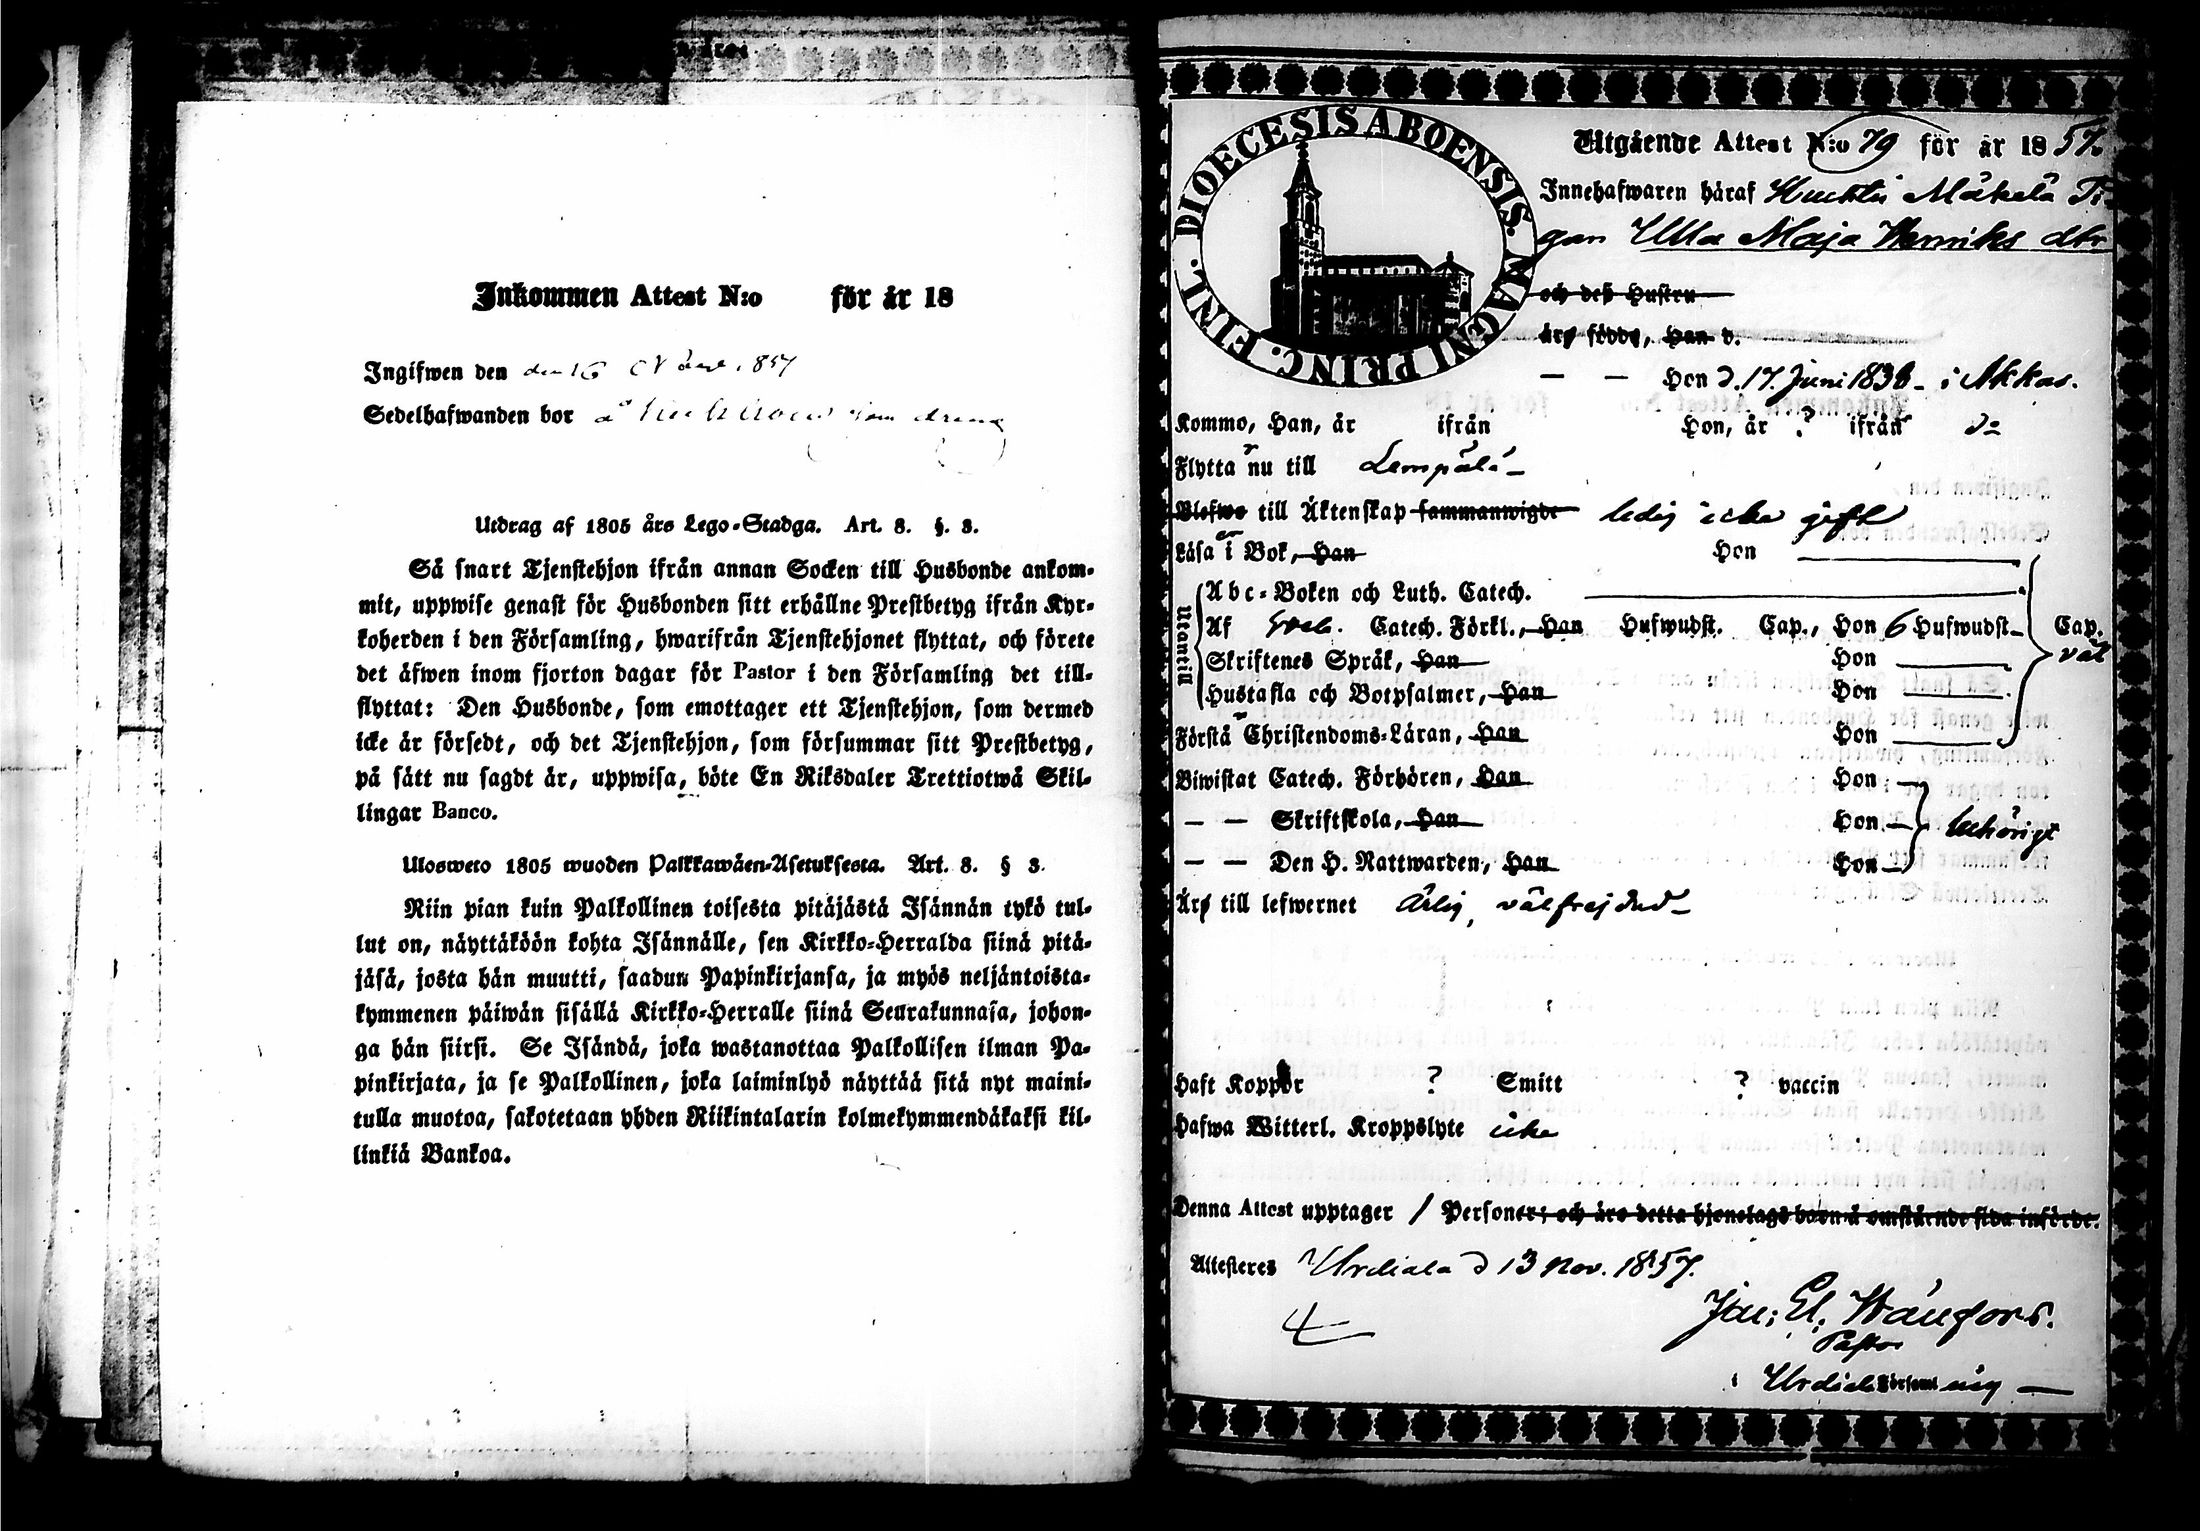 Inkommen Attest N:o för år 18
Ingifwen den den 16 1857
Sedelhafwanden bor å som dräng
Utdrag af 1805 års Lego-Stadga. Art. 8. §. 3.
Så snart Tjenstehjon ifrån annan Socken till Husbonde ankom-
mit, uppwise genast för Husbonden sitt erhållne Prestbetyg ifrån Kyr-
koherden i den Församling, hwarifrån Tjenstehjonet flyttat, och förete
det äfwen inom fjorton dagar för Pastor i den Församling det till-
flyttat: Den Husbonde, som emottager ett Tjenstehjon, som dermed
icke är försedt, och det Tjenstehjon, som försummar sitt Prestbetyg,
på sätt nu sagdt är, uppwisa, böte En Riksdaler Trettiotwå Skil-
lingar Banco.
Ulosweto 1805 wuoden Palkkawäen-Asetuksesta. Art. 8. § 3.
Niin pian kuin Palkollinen toisesta pitäjästä Isännän tykö tul-
lut on, näyttäköön kohta Isännälle, sen Kirkko-Herralda siinä pitä-
jäsä, josta hän muutti, saadun Papinkirjansa, ja myös neljäntoista-
kymmenen päiwän sisällä Kirkko-Herralle siinä Seurakunnasa, johon-
ga hän siirsi. Se Isändä, joka wastanottaa Palkollisen ilman Pa-
pinkirjata, ja se Palkollinen, joka laiminlyö näyttää sitä nyt maini-
tulla muotoa, sakotetaan yhden Riikintalarin kolmekymmendäkaksi kil-
linkiä Bankoa.
DIOECESIS ABOENSIS. MAGNI PRINC. FINL.
Utgående Attest N:o 79 för år 1857.
Innehafwaren häraf Huhtis Mäkelä Pi-
gan Ulla Maja Henriks dtr
och deß Hustru
äro födde, Han d.
— — Hon d. 17. Juni 1836 – i Akkas.
Kommo, Han, år ifrån Hon, år ? ifrån do
Flyttar nu till Lempälä –
Blefwo till Äktenskap sammanwigde ledig icke gift
Läsa i Bok, Han Hon
Utantill
Abc-Boken och Luth. Catech.
Af Catech. Förkl., Han Hufwudst. Cap., Hon 6 Hufwudst. Cap.
Skriftenes Språk, Han Hon väl
Hustafla och Botpsalmer, Han Hon
Förstå Christendoms-Läran, Han Hon
Biwistat Catech. Förhören, Han Hon
— — Skriftskola, Han Hon behörigt
— — Den H. Nattwarden, Han Hon
Äro till lefwernet Ärlig, välfrejdad –
Haft Koppor ? Smitt ? vaccin
Hafwa Witterl. Kroppslyte icke
Denna Attest upptager 1 Personer; och äro detta hjonelags barn å omstående sida införde.
Attesteres Urdiala d 13 Nov. 1857.
Pastor
i Urdiala Församling —